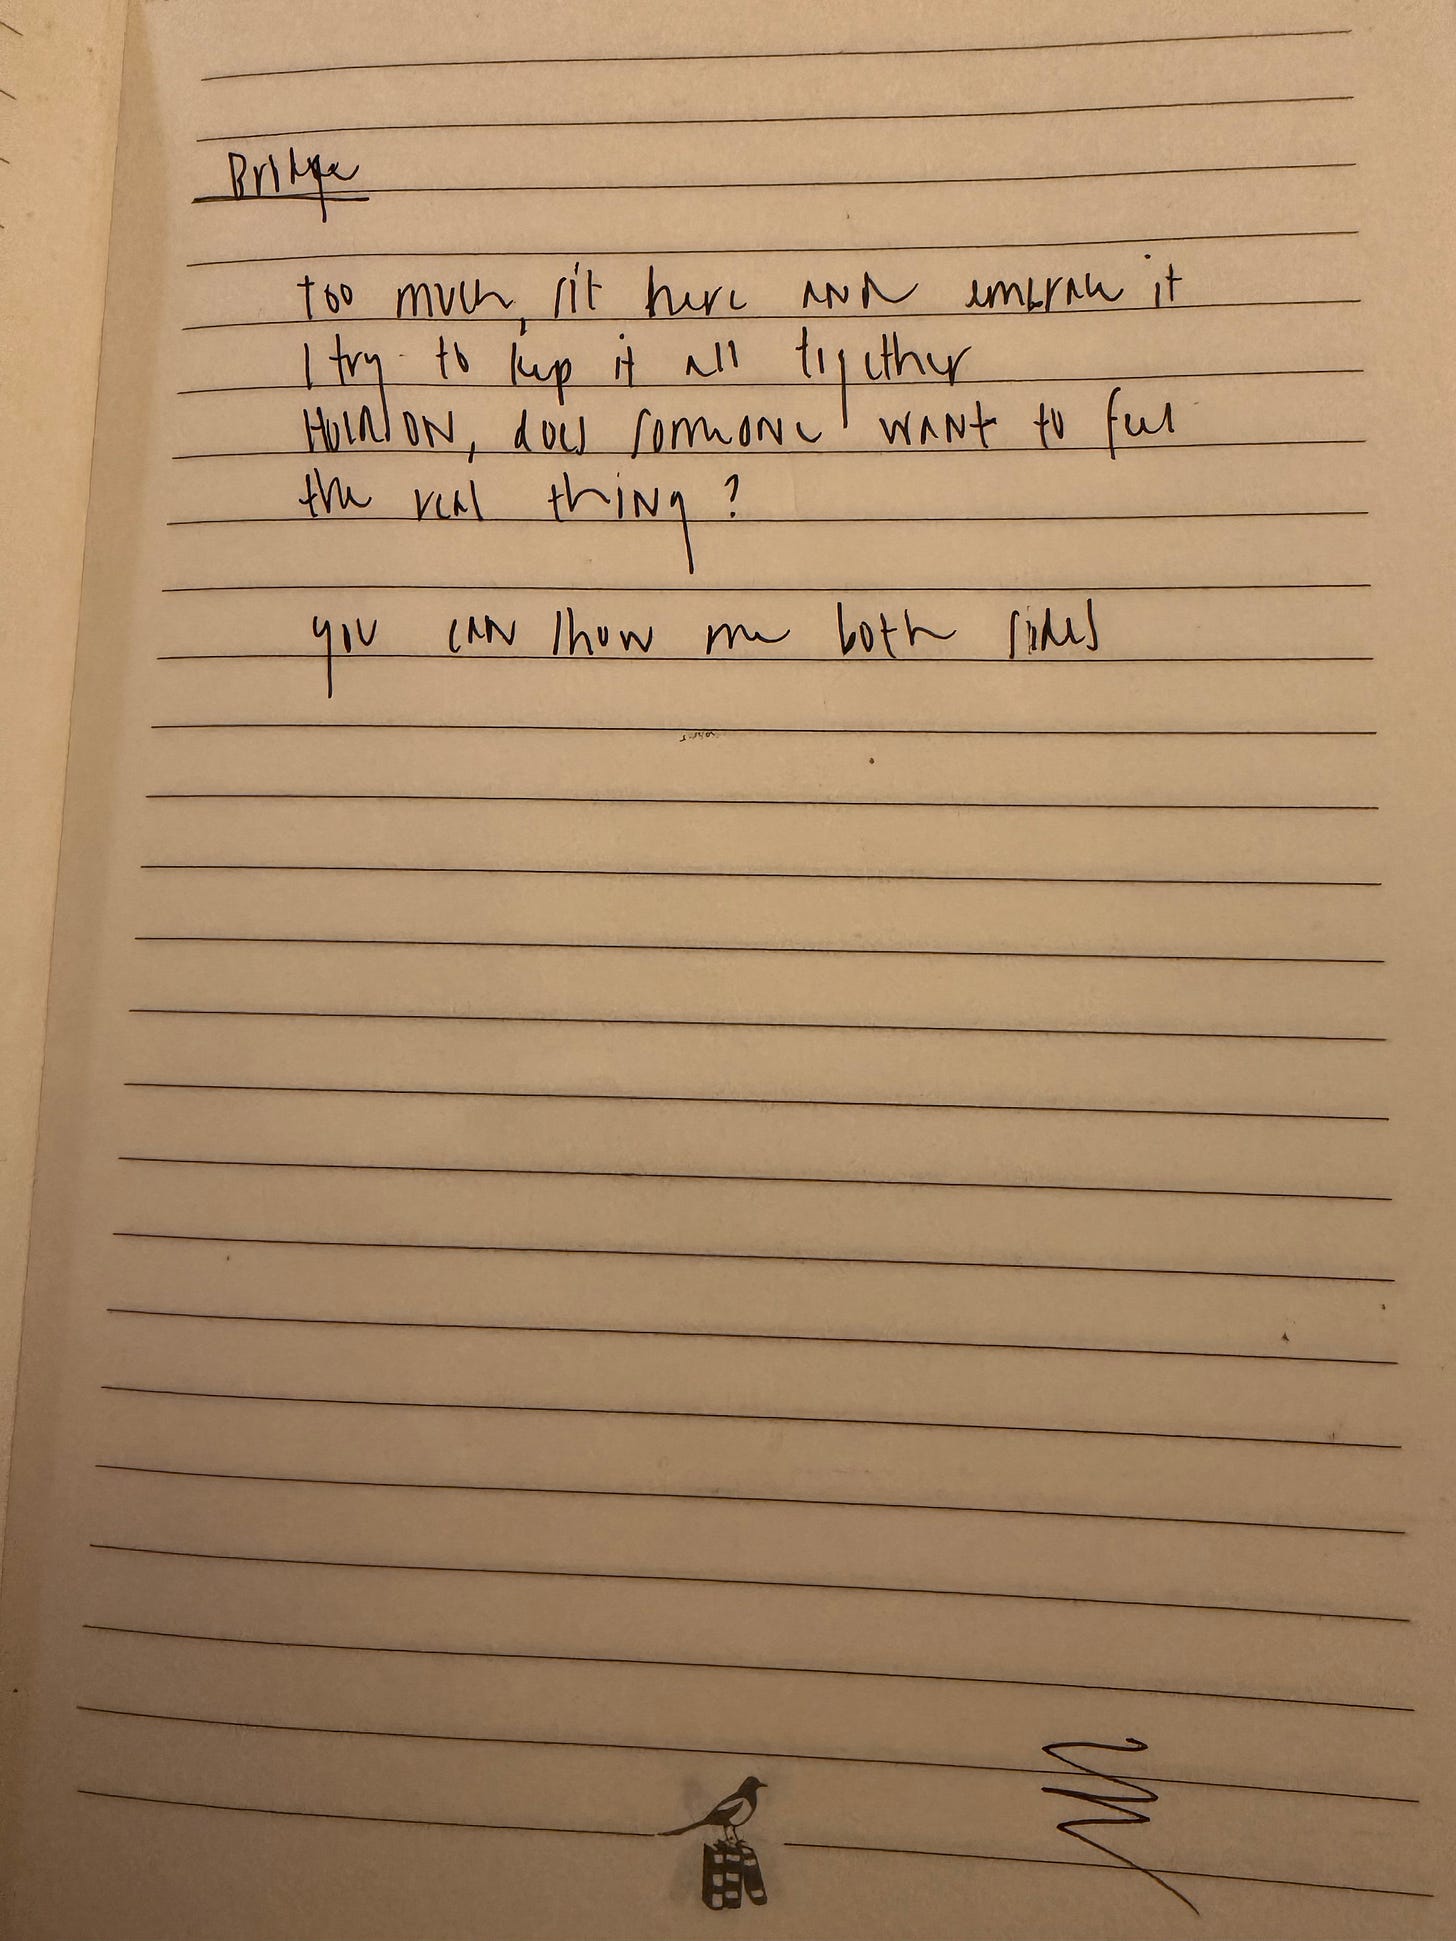 Bridge
too much, sit here and embrace it
I try to keep it all together
Hold on, does someone want to feel
the real thing?
you can show me both sides